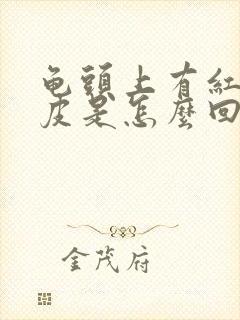 龟頭上有紅
皮是怎麽回
金茂府